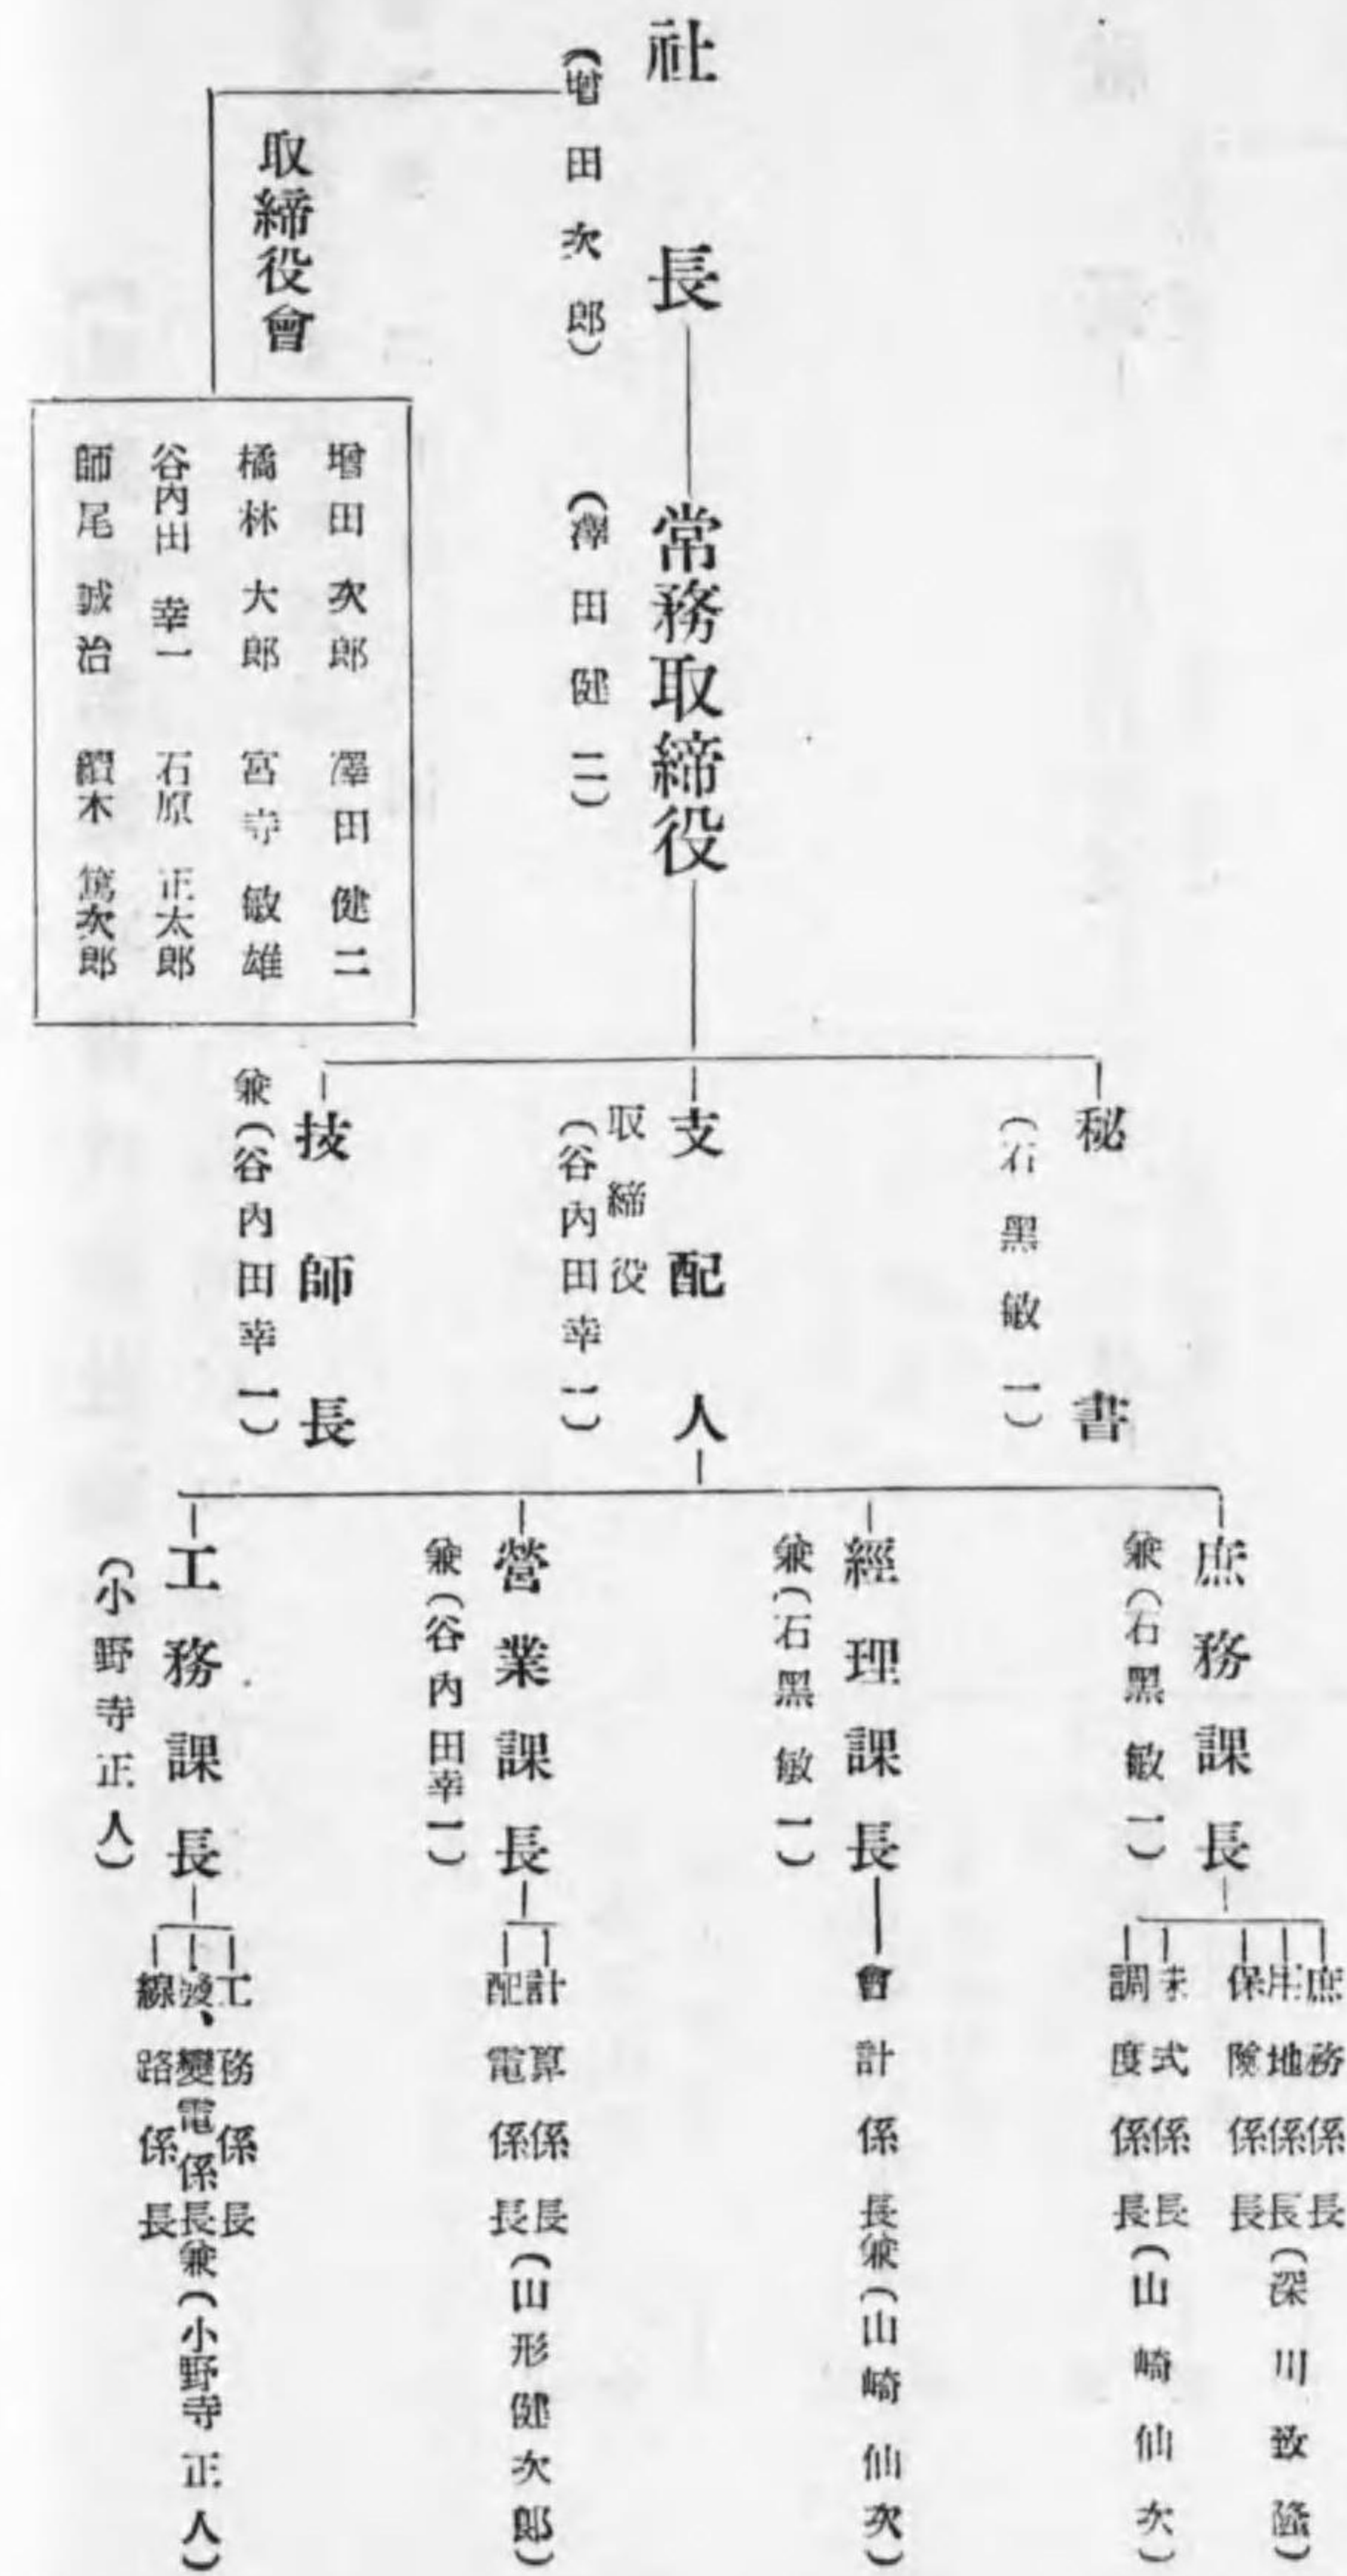 社長
（增田次郎）
取締役會
增田次郎 澤田健二
橋林大郎 宮寺敏雄
谷內田幸一 石原正太郎
師尾誠治 續木篤次郎
常務取締役
（澤田健二）
秘書
（石黑敏一）
支配人
取締役
（谷內田幸一）
技師長
兼（谷內田幸一）
庶務課長
兼（石黑敏一）
庶務係長
用地係長（深川致隆）
保險係長
株式係長
調度係長（山崎仙次）
經理課長
兼（石黑敏一）
會計係長兼（山崎仙次）
營業課長
兼（谷內田幸一）
計算係長
配電係長（山形健次郎）
工務課長
（小野寺正人）
工務係長
發、變電係長兼（小野寺正人）
線路係長